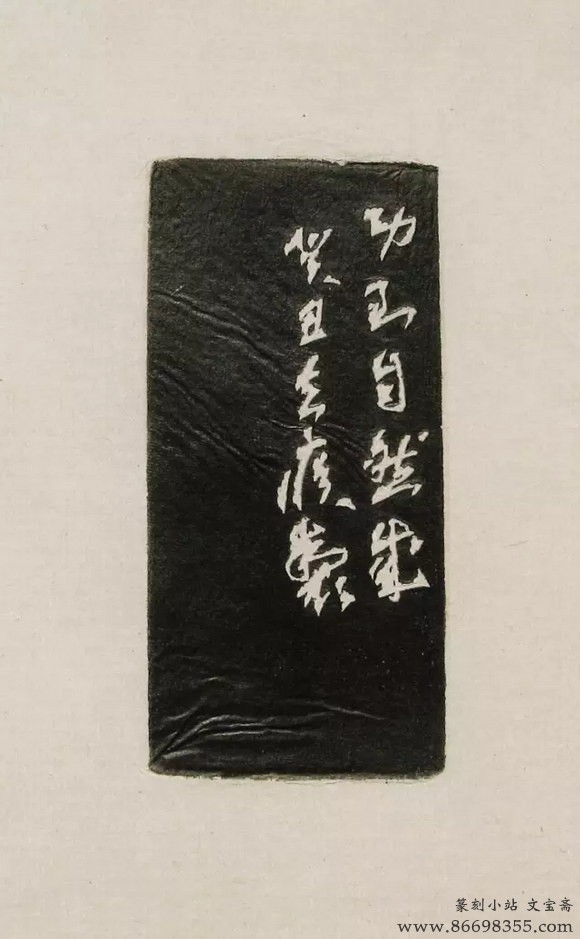 功到自然成
癸丑去疾
篆刻小站 文宝斋
www.86698355.com